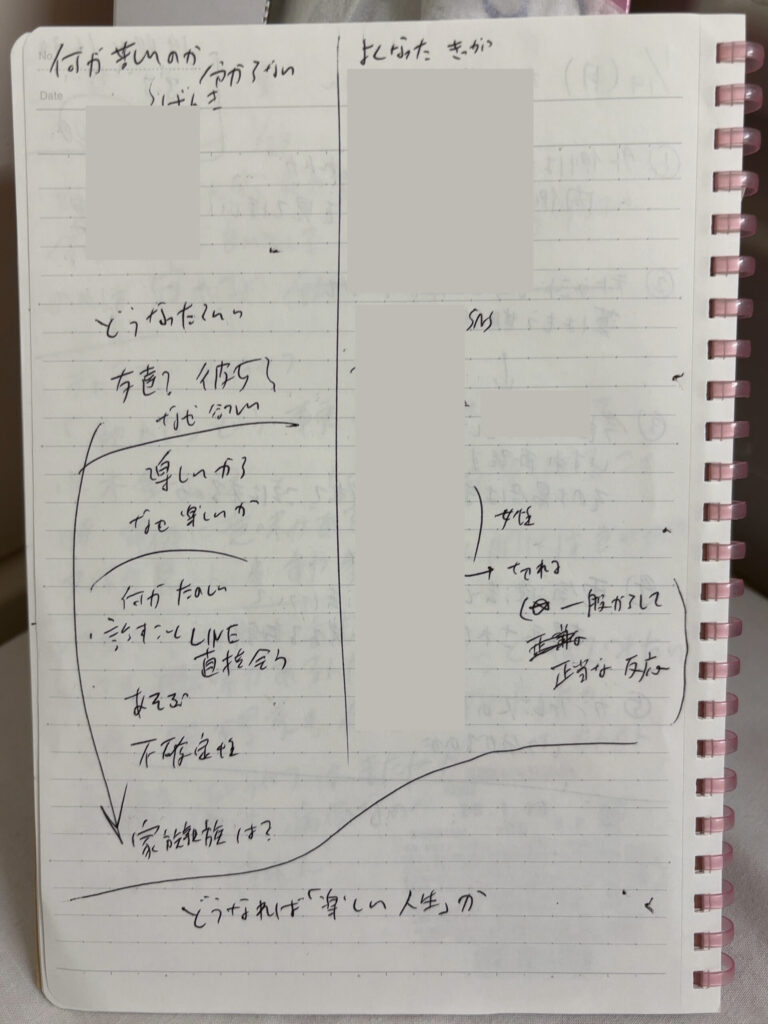 何が苦しいのか
分からない
どうなったらいい
友達? 彼女?
なぜ欲しい
楽しいから
なぜ楽しいか
何がたのしい
・話すこと LINE
直接会う
あそぶ
不確定性
家族親族は?
よくなった きっかけ
SNS
女性
→ 切れる
一般からして
正当な 反応
どうなれば「楽しい人生」か